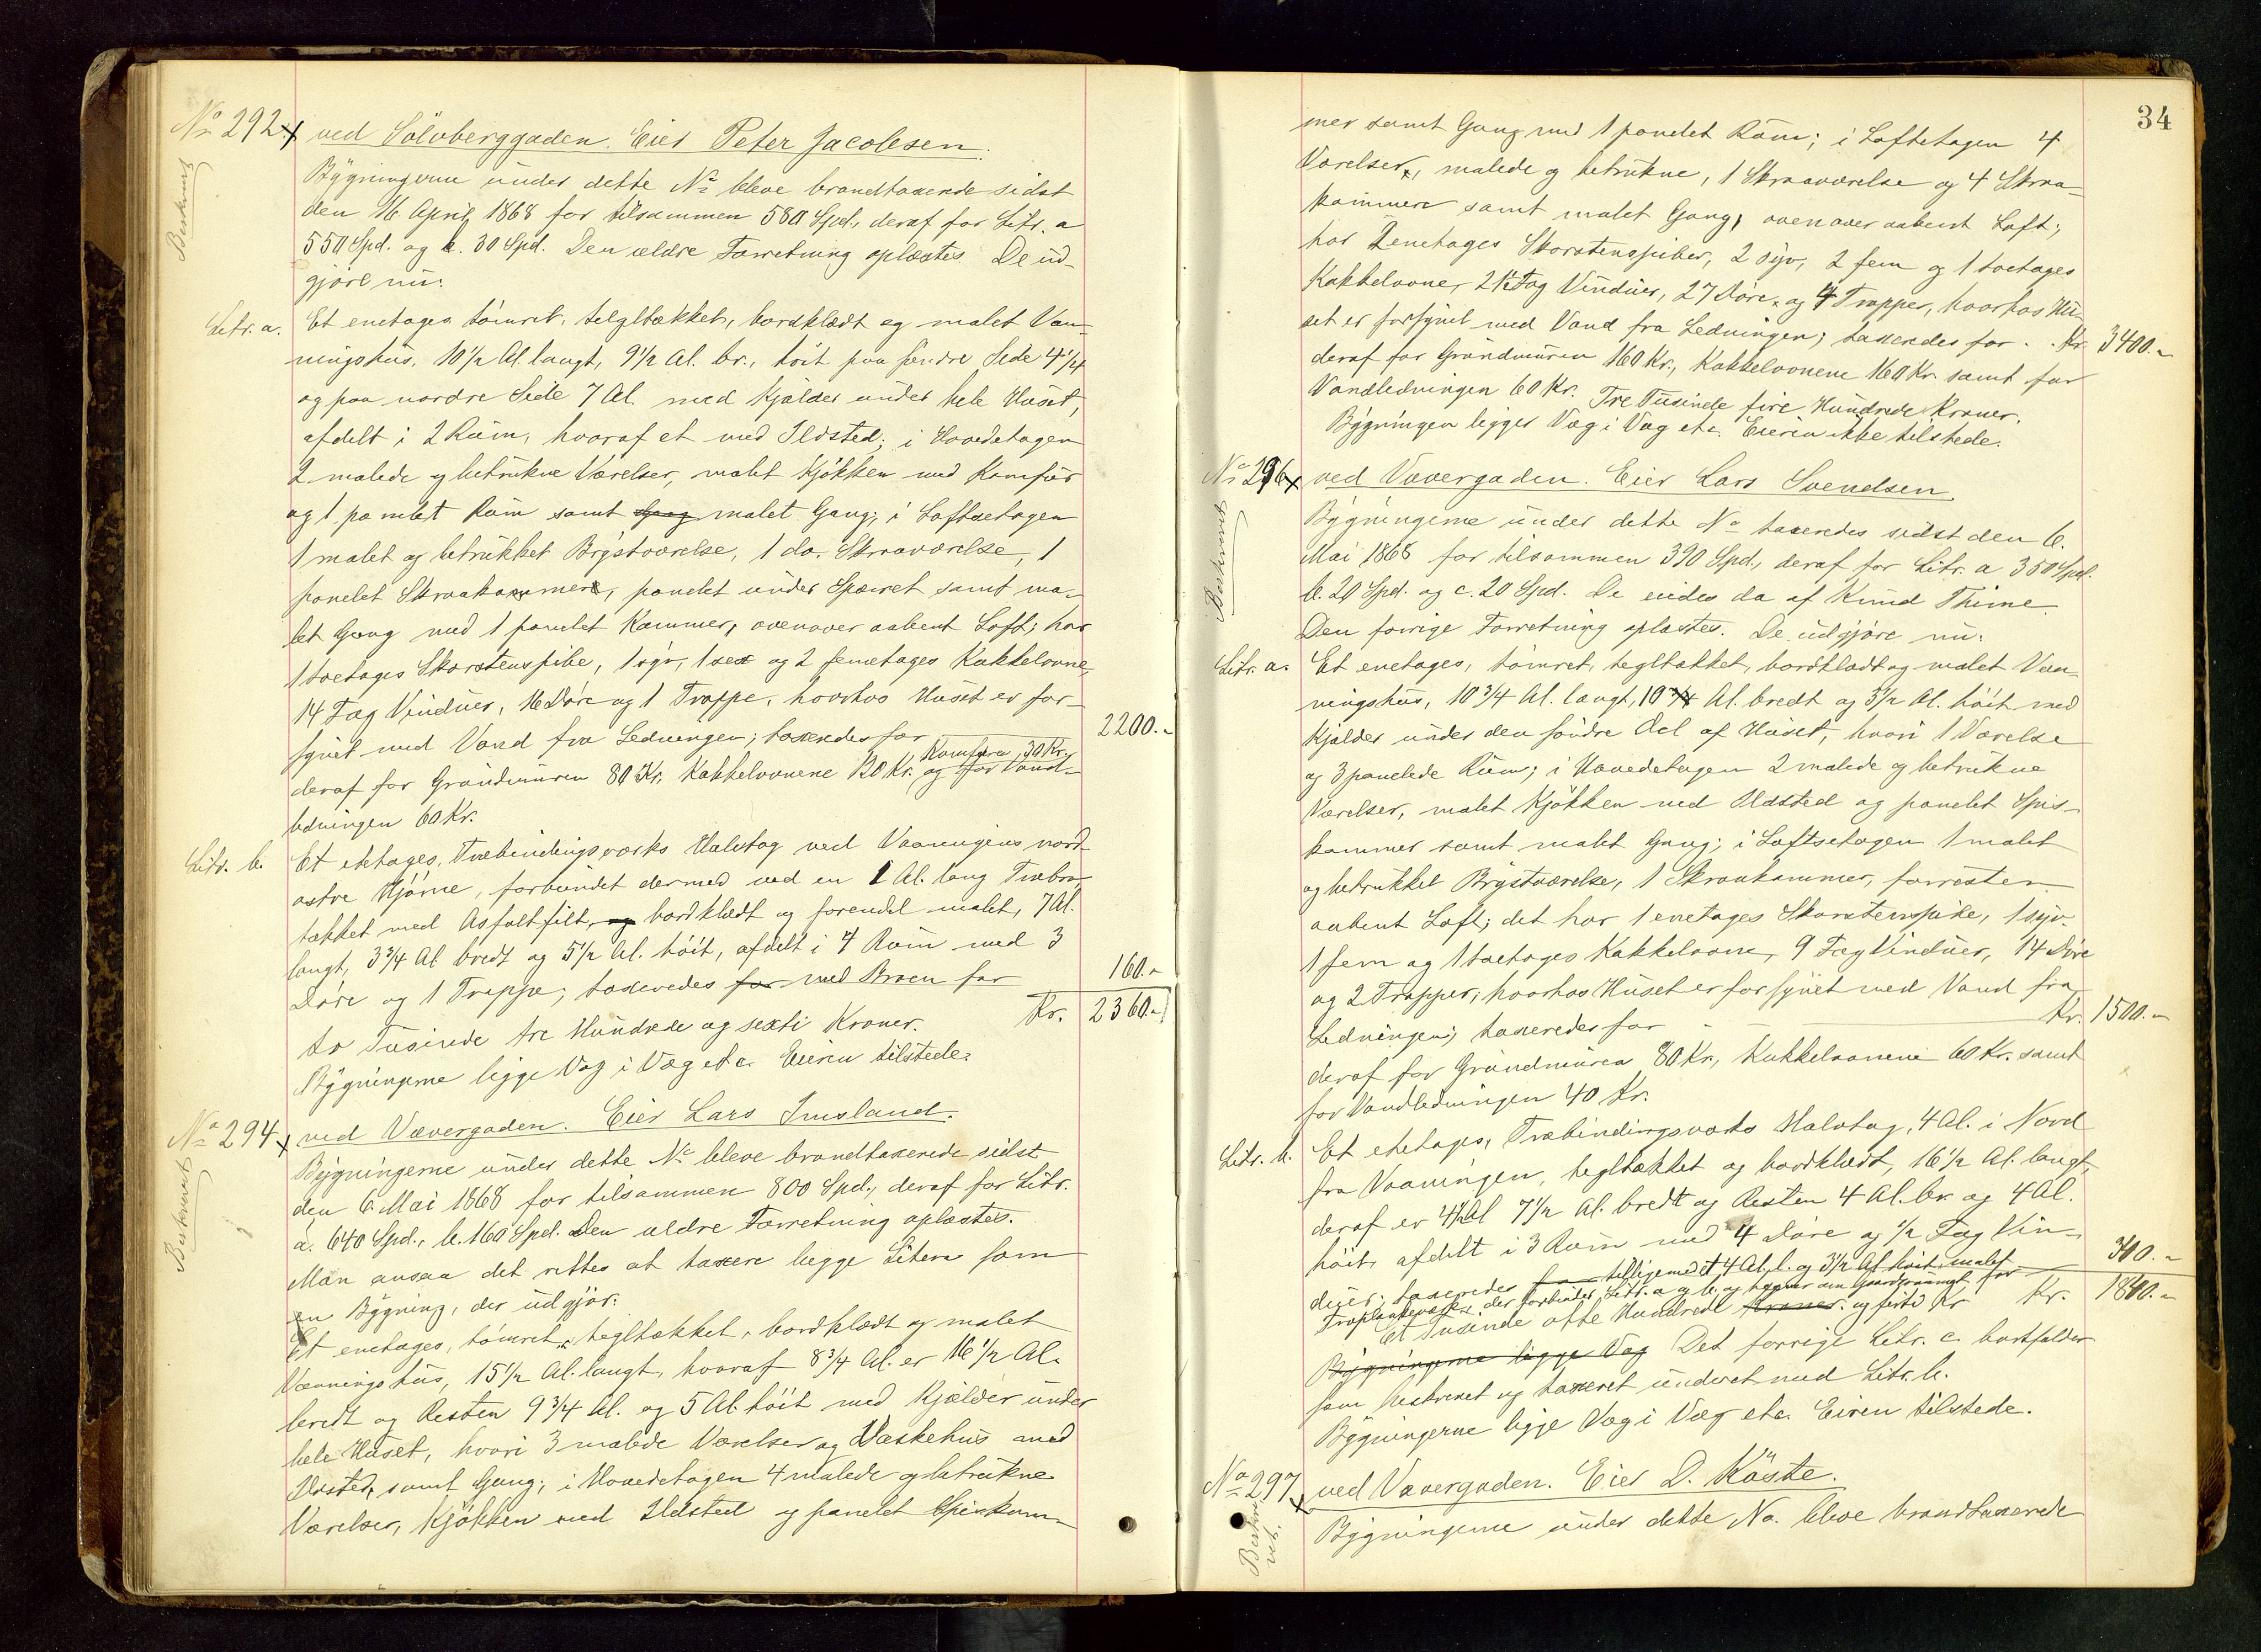 No 292 ved Sölvberggaden. Eier Peter Jacobsen.
Beskrevet
Bygningerne under dette No bleve brandtaxerede sidst
den 16 April 1868 for tilsammen 580 Spd., deraf for Litr. a
550 Spd. og b. 30 Spd. Den ældre Forretning oplæstes. De ud-
gjöre nu:
Litr. a. Et enetages tömret, teglt&#230;kket, bordklædt og malet Vaa-
ningshus, 10 1/2 Al. langt, 9 1/2 Al. br., höit paa söndre Side 4 1/4
og paa nordre Side 7 Al. med Kjælder under hele Huset,
afdelt i 2 Rum, hvoraf et med Ildsted; i Hovedetagen
2 malede og betrukne Værelser, malet Kjökken med Komfur
og 1 panelet Rum samt malet Gang; i Loftsetagen
1 malet og betrukket Brystværelse, 1 do. Skraaværelse, 1
panelet Skraakammer, panelet under Spærret samt ma-
let Gang med 1 panelet Kammer, ovenover aabent Loft; har
1 toetages Skorstenspibe, 1 syv, 1 sex og 2 femetages Kakkelovne,
14 Fag Vinduer, 16 Döre og 1 Trappe, hvorhos Huset er for-
synet med Vand fra Ledningen; taxeredes for 2200.-
deraf for Grundmuren 80 Kr., Kakkelovnene 120 Kr. Komfuren 30 Kr. og for Vand-
ledningen 60 Kr.
Litr. b. Et etetages, Træbindingsværks Halvtag ved Vaaningens nord-
østre Hjörne, forbundet dermed ved en 2 Al. lang Træbro,
tækket med Asfaltfilt, og bordklædt og forendel malet, 7 Al.
langt, 3 3/4 Al. bredt og 5 1/2 Al. höit, afdelt i 4 Rum med 3
Döre og 1 Trappe; taxeredes for med Broen for 160.-
to Tusinde tre Hundrede og sexti Kroner. Kr. 2360.-
Bygningerne ligge Væg i Væg etc. Eieren tilstede.
No 294 ved Vævergaden. Eier Lars Imsland.
Beskrevet
Bygningerne under dette No bleve brandtaxerede sidst
den 6. Mai 1868 for tilsammen 800 Spd., deraf for Litr.
a. 640 Spd., b. 160 Spd. Den ældre Forretning oplæstes.
Man ansaa det rettest at taxere begge Litera som
en Bygning, der udgjör:
Et enetages, tömret, tegltækket, bordklædt og malet
Vaaningshus, 15 1/2 Al. langt, hvoraf 8 3/4 Al. er 16 1/2 Al.
bredt og Resten 9 3/4 Al. og 5 Al. höit med Kjælder under
hele Huset, hvori 3 malede Værelser og Vaskehus med
Ildsted, samt Gang; i Hovedetagen 4 malede og betrukne
Værelser, Kjökken med Ildsted og panelet Spiskam-
34
mer samt Gang med 1 panelet Rum; i Loftetagen 4
Værelser, malede og betrukne, 1 Skraaværelse og 4 Skraa-
kammere samt malet Gang, ovenover aabent Loft;
har 2 enetages Skorstenspiber, 2 syv, 2 fem og 1 toetages
Kakkelovne, 21 1/2 Fag Vinduer, 27 Döre og 4 Trapper, hvorhos Hu-
set er forsynet med Vand fra Ledningen; taxeredes for . . Kr. 3400.-
deraf for Grundmuren 160 Kr., Kakkelovnene 160 Kr. samt for
Vandledningen 60 Kr. Tre Tusinde fire Hundrede Kroner.
Bygningen ligger Væg i Væg etc. Eieren ikke tilstede.
No 296 ved Vævergaden. Eier Lars Svendsen.
Beskrevet
Bygningerne under dette No taxeredes sidst den 6.
Mai 1868 for tilsammen 390 Spd., deraf for Litr. a 350 Spd.
b. 20 Spd. og c. 20 Spd. De eiedes da af Knud Thime.
Den forrige Forretning oplæstes. De udgjöre nu:
Litr. a. Et enetages, tömret, tegltækket, bordklædt og malet Vaa-
ningshus, 10 3/4 Al. langt, 10 3/4 Al. bredt og 3 1/2 Al. höit med
Kjælder under den söndre Del af Huset, hvori 1 Værelse
og 3 panelede Rum; i Hovedetagen 2 malede og betrukne
Værelser, malet Kjökken med Ildsted og panelet Spis-
kammer samt malet Gang; i Loftsetagen 1 malet
og betrukket Brystværelse, 1 Skraakammer, forresten
aabent Loft; det har 1 enetages Skorstenspibe, 1 syv-
1 fem og 1 toetages Kakkelovne, 9 Fag Vinduer, 14 Döre
og 2 Trapper, hvorhos Huset er forsynet med Vand fra
Ledningen; taxeredes for - Kr. 1500.-
deraf for Grundmuren 80 Kr., Kakkelovnene 60 Kr. samt
for Vandledningen 40 Kr.
Litr. b. Et etetages, Træbindingsværks Halvtag, 4 Al. i Nord
fra Vaaningen, tegltækket og bordklædt, 16 1/2 Al. langt,
deraf er 4 1/2 Al 7 1/2 Al. bredt og Resten 4 Al. br. og 4 Al.
höit, afdelt i 3 Rum med 4 Döre og 1/2 Fag Vin-
duer; taxeredes for tilligemed et 4 Al. l. og 3 1/2 Al. höit, malet 340.-
Træplankeværk, der forbinder Litr. a og b. og tegner om Gaardsrummet for
Et Tusinde otte Hundrede Kroner. og firti Kr Kr. 1840.-
Bygningerne ligge Væg Det forrige Litr. c. bortfalder
som beskrevet og taxeret underet med Litr. b.
Bygningerne ligge Væg i Væg etc. Eieren tilstede.
No 297 ved Vævergaden. Eier D. Köste.
Beskre-
vet.
Bygningerne under dette No. bleve brandtaxerede